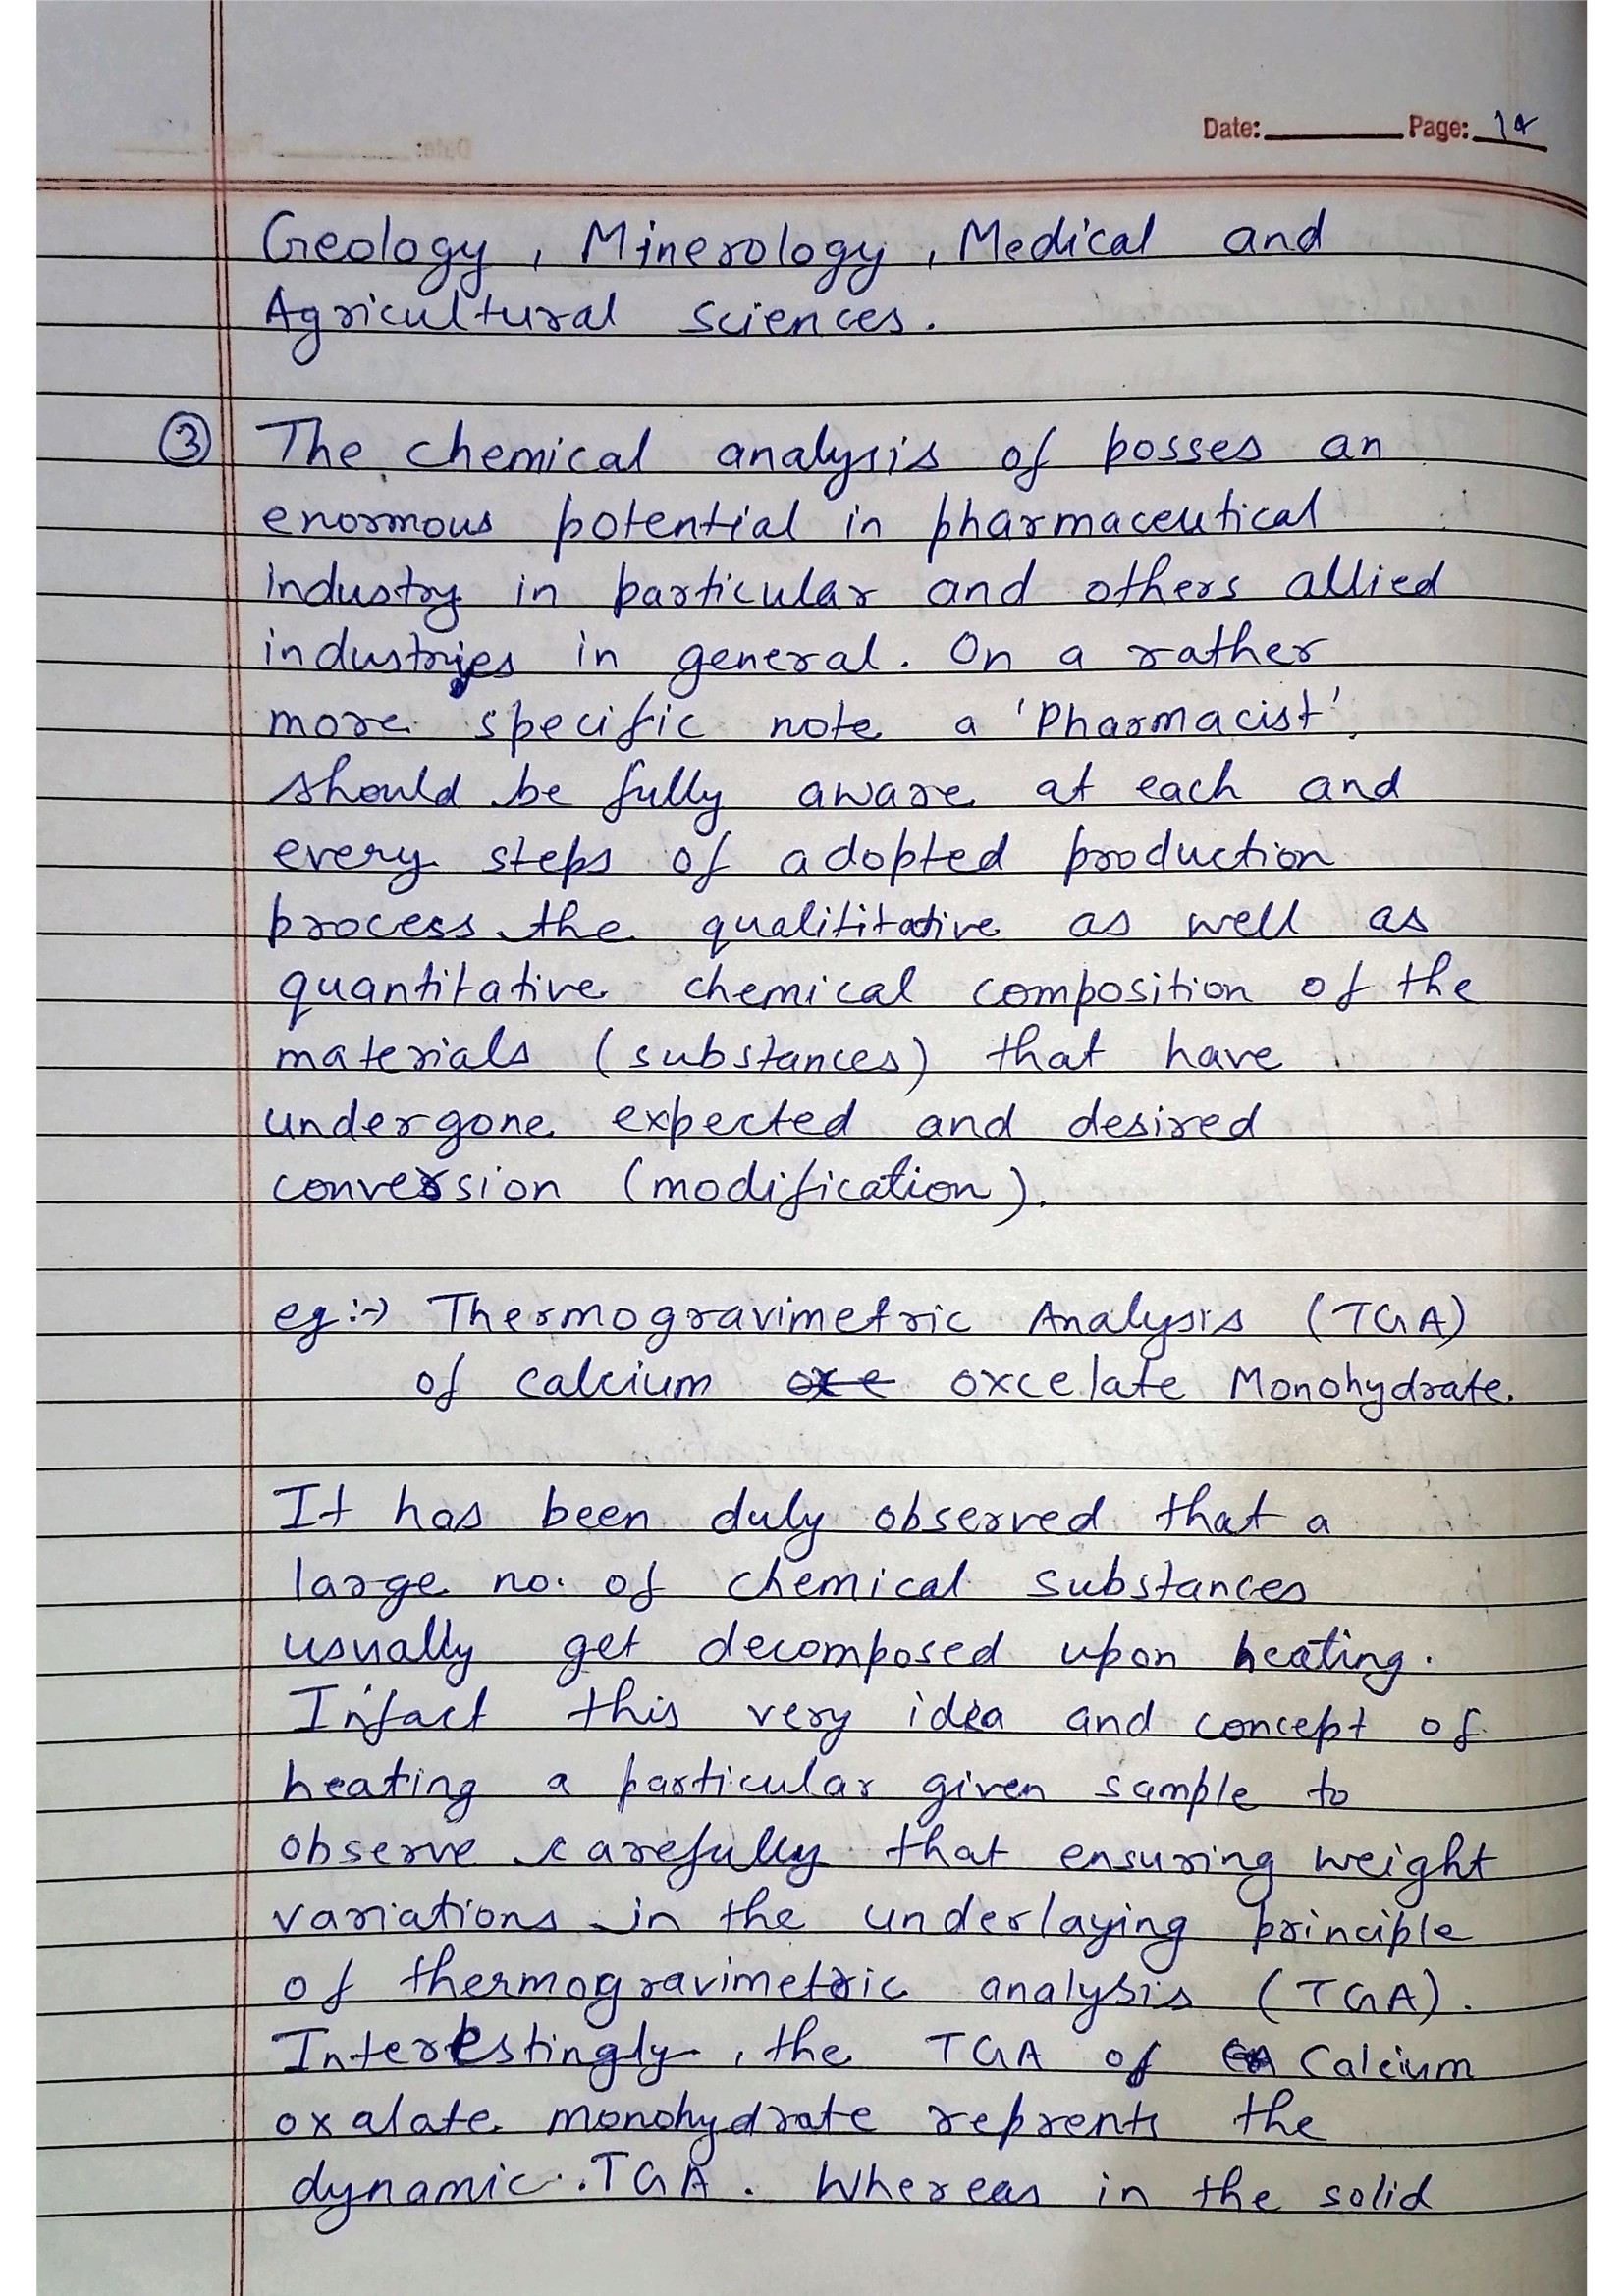 Date: Page: 14
Geology, Minerology, Medical and
Agricultural sciences.
③ The chemical analysis of posses an
enormous potential in pharmaceutical
industry in particular and others allied
industries in general. On a rather
more specific note a 'Pharmacist'
should be fully aware at each and
every steps of adopted production
process the qualititative as well as
quantitative chemical composition of the
materials (substances) that have
undergone expected and desired
conversion (modification).
eg:-> Thermogravimetric Analysis (TGA)
of calcium oxcelate Monohydrate.
It has been duly observed that a
large no. of chemical substances
usually get decomposed upon heating.
Infact this very idea and concept of
heating a particular given sample to
observe carefully that ensuring weight
variations in the underlaying principle
of thermogravimetric analysis (TGA).
Interestingly, the TGA of Calcium
oxalate monohydrate reprents the
dynamic. TGA. Whereas in the solid